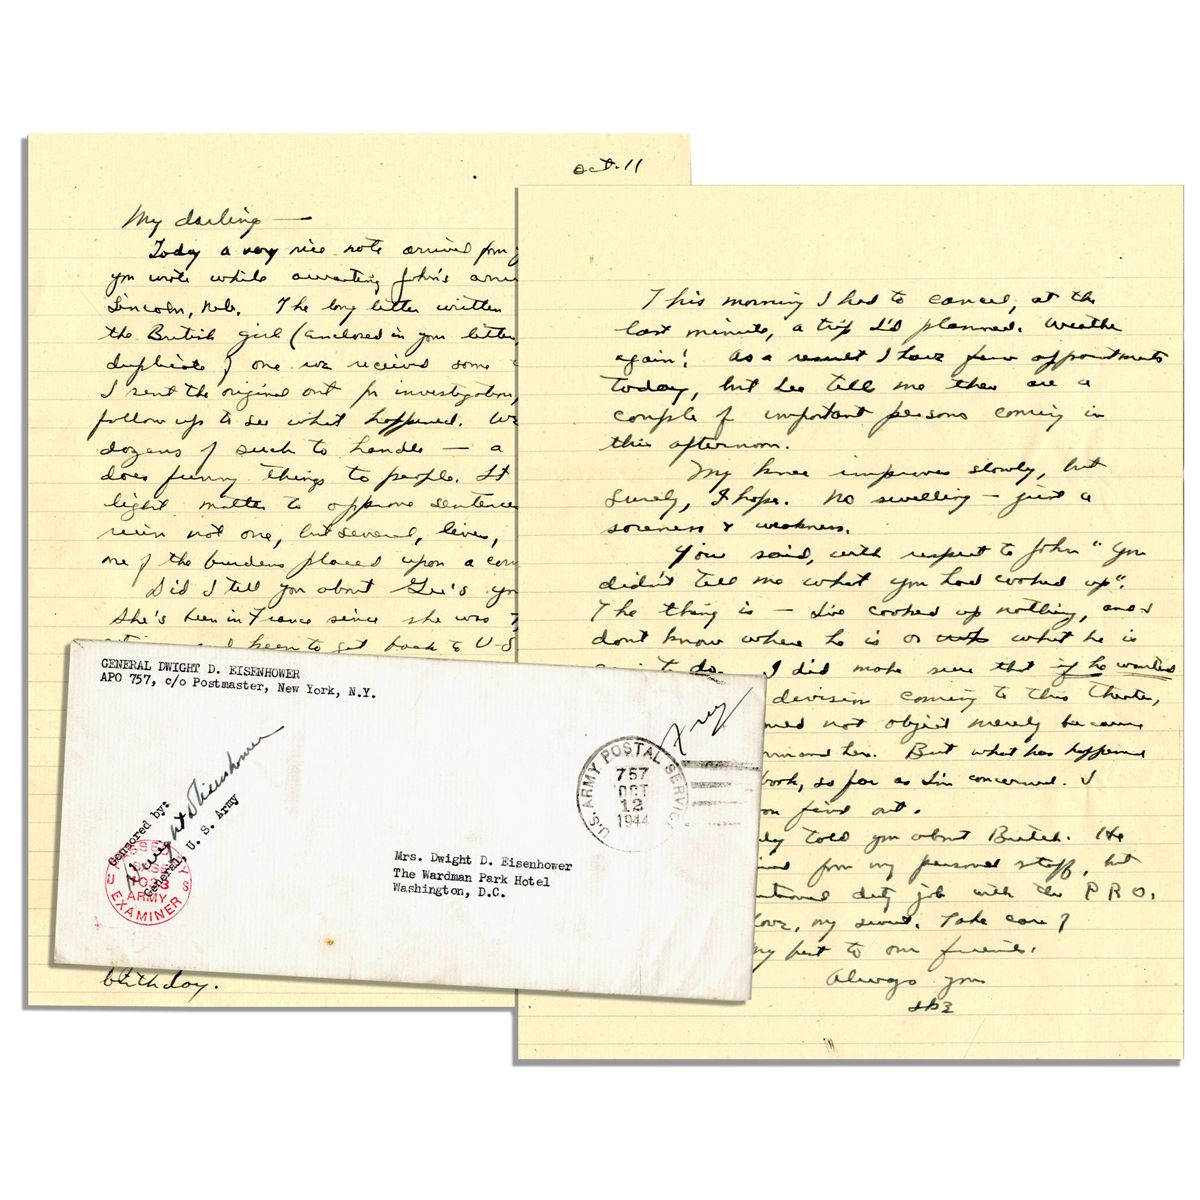 Oct. 11
My darling —
Today a very nice note arrived from
you wrote while awaiting John's
Lincoln, Neb. The long letter written
the British girl (enclosed in your letter,
duplicate of one we received some
I sent the original out for investigation,
follow up to see what happened. We
dozens of such to handle — a
does funny things to people. It
light matter to approve sentences
ruin not one, but several, lives,
one of the burdens placed upon a com
Did I tell you about Gee's
She's been in France since she was
been to get back to U-S
birthday.
This morning I had to cancel, at the
last minute, a trip I'd planned. Weather
again! As a result I have few appointments
today, but Lee tells me there are a
couple of important persons coming in
this afternoon.
My knee improves slowly, but
surely, I hope. No swelling — just a
soreness & weakness.
You said, with respect to John "You
didn't tell me what you had cooked up".
The thing is — I've cooked up nothing, and
don't know where he is or what he is
to do. I did make sure that if he wanted
division coming to this theatre,
need not object merely because
command here. But what has happened
book, so far as I'm concerned. I
find out.
told you about Butch. He
from my personal staff, but
duty job with the P R O.
love, my sweet. Take care of
my best to our friends.
Always your
Ike
GENERAL DWIGHT D. EISENHOWER
APO 757, c/o Postmaster, New York, N.Y.
Free
U.S. ARMY POSTAL SERVICE
757
OCT
12
1944
Censored by:
Dwight D Eisenhower
General, U. S. Army
PASSED BY
BASE
ARMY
EXAMINER
U S
Mrs. Dwight D. Eisenhower
The Wardman Park Hotel
Washington, D.C.